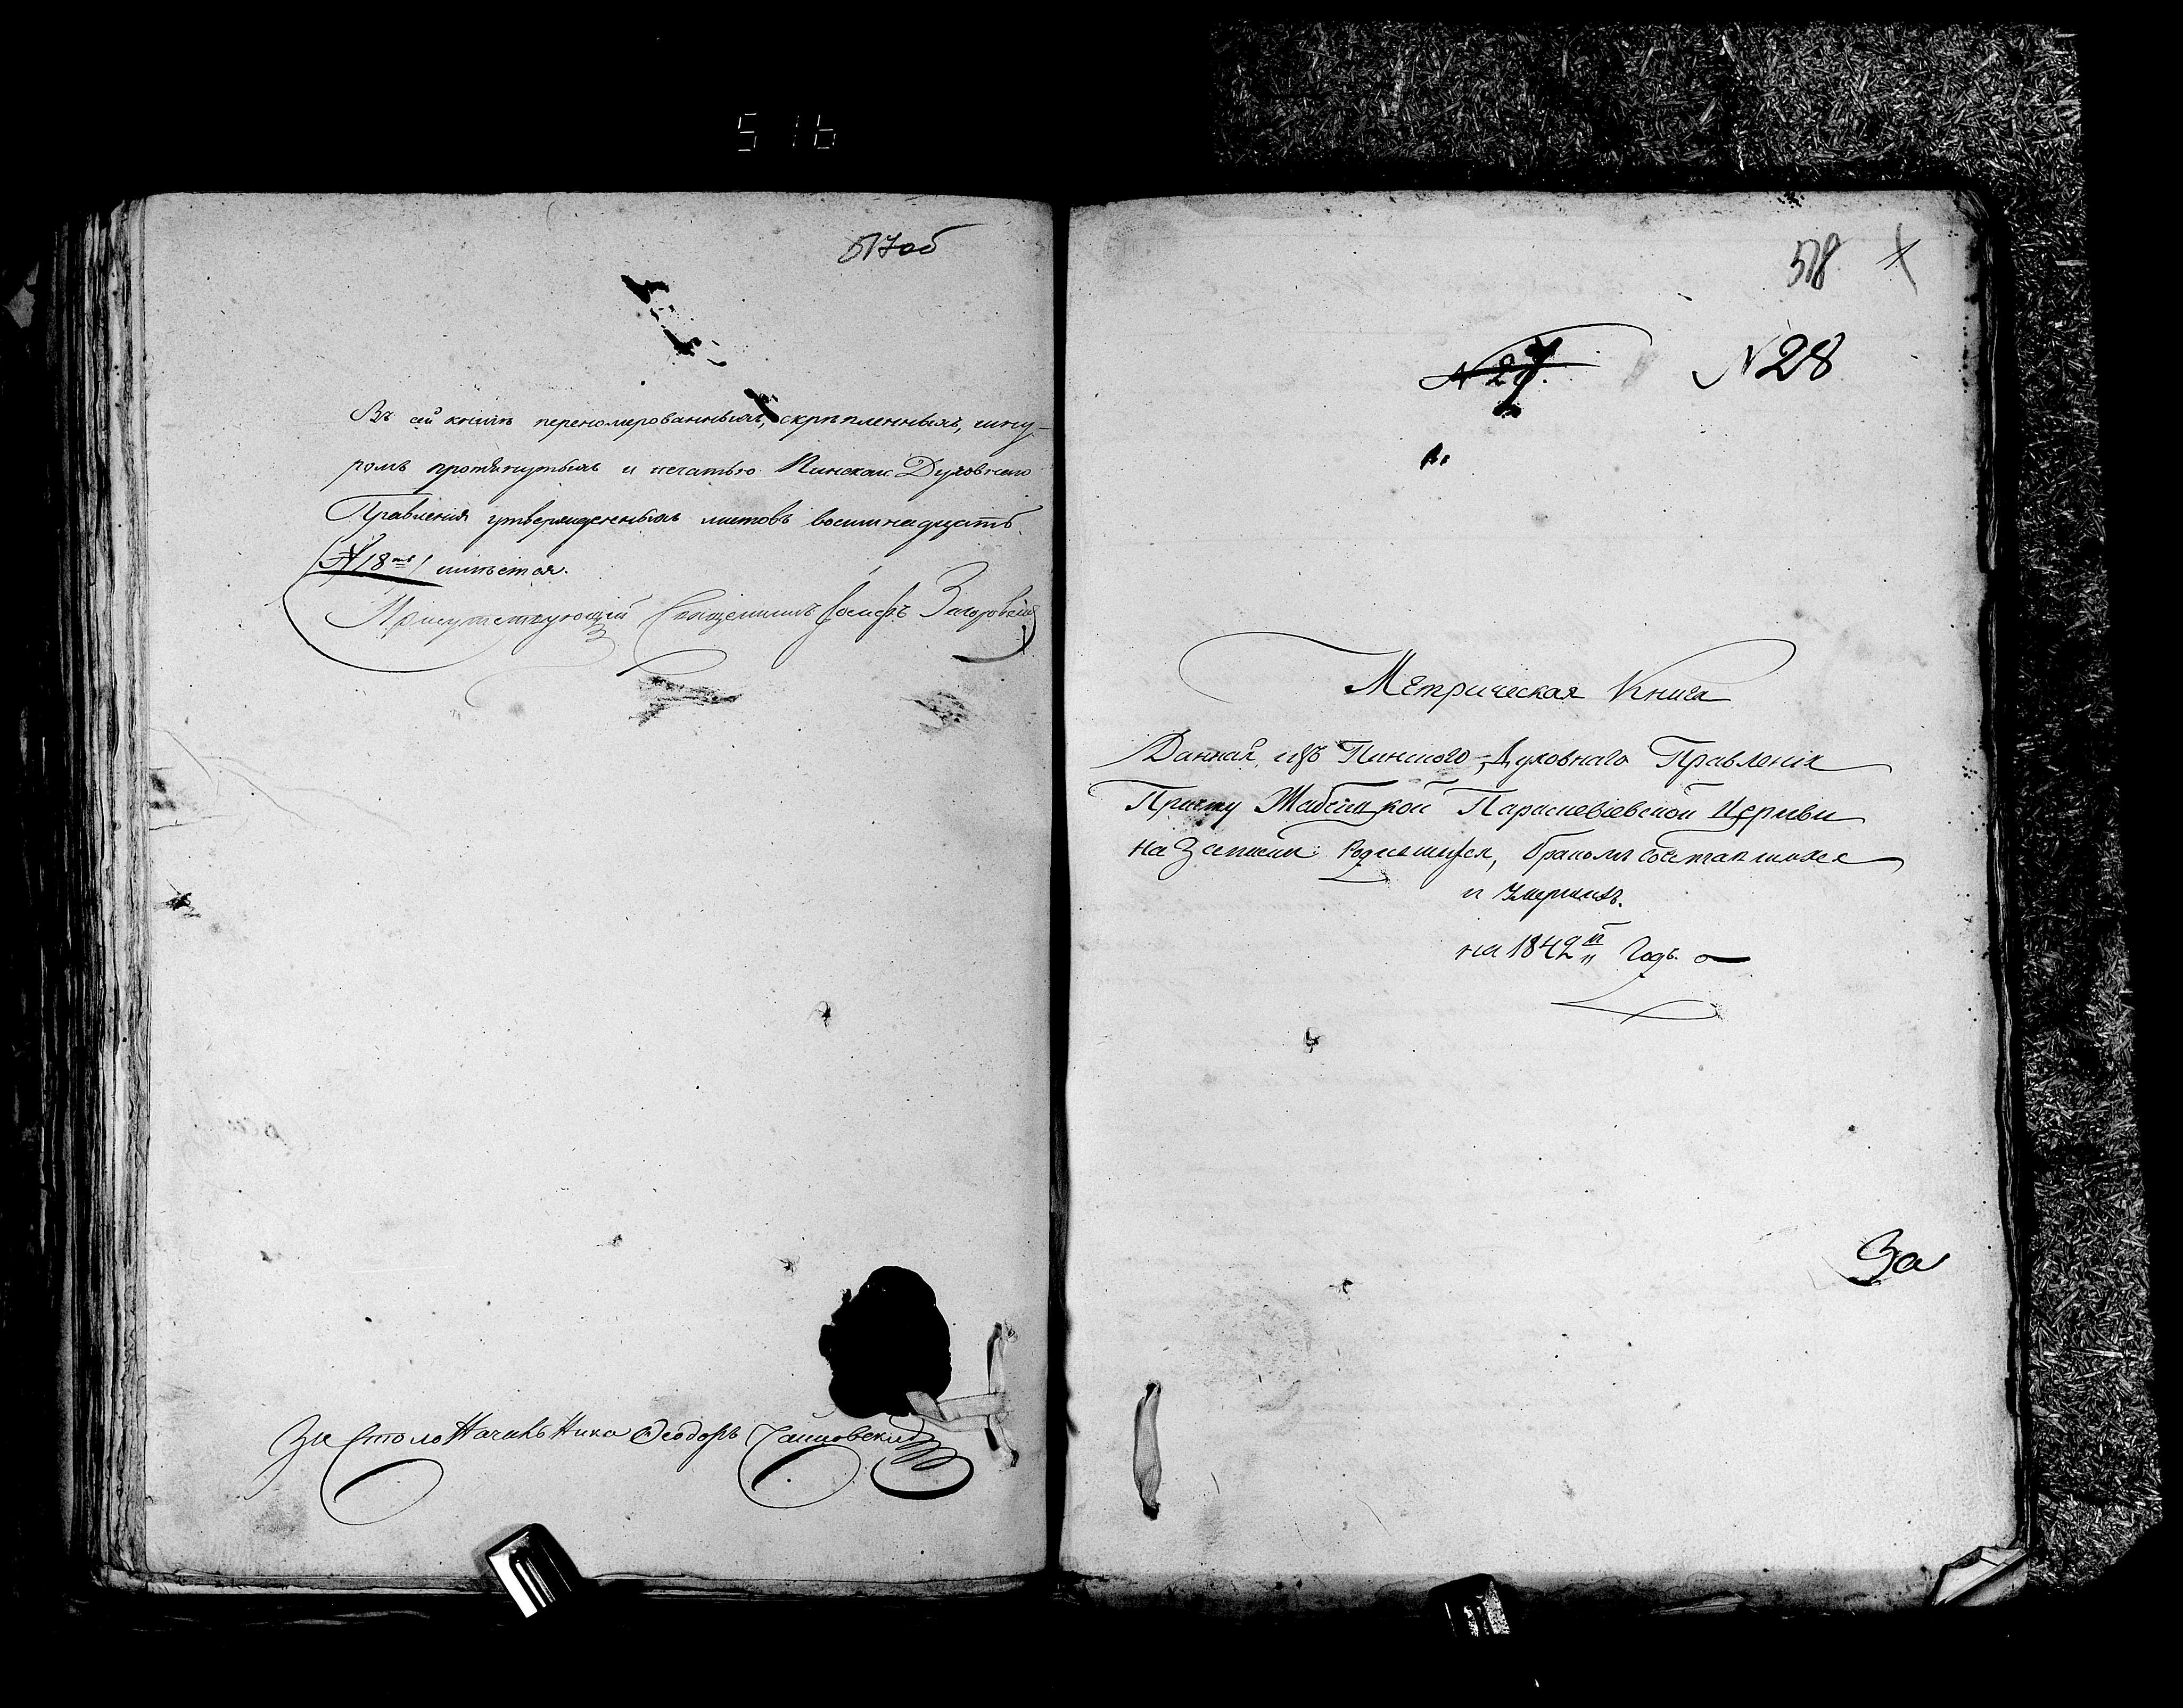 516
517об
Въ сей книгѣ перенумерованныхъ, скрѣпленныхъ, шну-
ромъ протянутыхъ и печатью Пинскаго Духовнаго
Правленія утвержденныхъ листовъ восемнадцать
N 18 имѣется.
Присутствующій Священникъ Іосифъ Загоровскій
За Столоначальника Ѳеодоръ
518
N 27. N 28
Метрическая Книга
Данная изъ Пинского Духовнаго Правленія
Причту Жабчицкой Параскевіевской Церкви
на записки родившихся, бракомъ сочетавшихся
и умершихъ.
на 1842й Годъ.
За